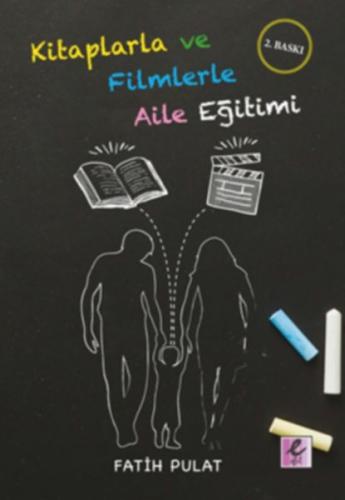 Kitaplarla ve
Filmlerle
Aile Eğitimi
2. BASKI
FATİH PULAT
e